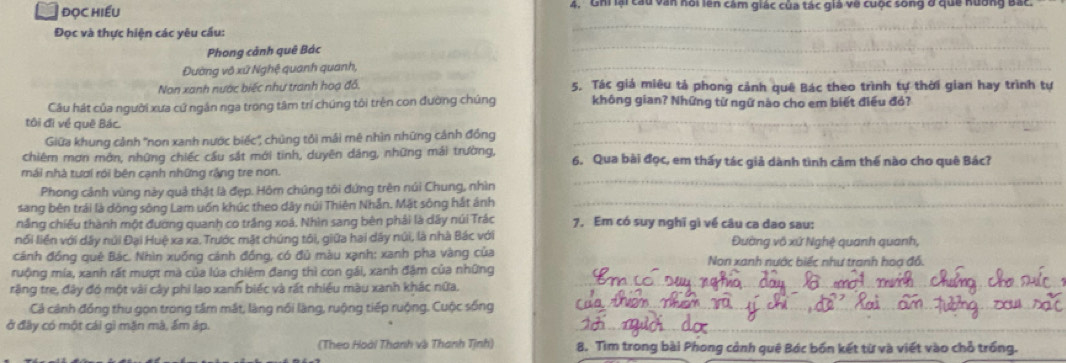 ĐỌC HIỂU
Đọc và thực hiện các yêu cầu:
Phong cảnh quê Bác
Đường vô xứ Nghệ quanh quanh,
Non xanh nước biếc như tranh hoạ đồ.
Câu hát của người xưa cứ ngân nga trong tâm trí chúng tôi trên con đường chúng
tôi đi về quê Bác.
Giữa khung cảnh "non xanh nước biếc", chúng tôi mải mê nhìn những cánh đồng
chiêm mơn mởn, những chiếc cầu sắt mới tinh, duyên dáng, những mái trường,
mái nhà tươi rói bên cạnh những rặng tre non.
Phong cảnh vùng này quả thật là đẹp. Hôm chúng tôi đứng trên núi Chung, nhìn
sang bên trái là dòng sông Lam uốn khúc theo dãy núi Thiên Nhẫn. Mặt sông hắt ánh
nắng chiếu thành một đường quanh co trắng xoá. Nhìn sang bên phải là dãy núi Trác
nối liền với dãy núi Đại Huệ xa xa. Trước mặt chúng tôi, giữa hai dãy núi, là nhà Bác với
cánh đồng quê Bác. Nhìn xuống cánh đồng, có đủ màu xanh: xanh pha vàng của
ruộng mía, xanh rất mượt mà của lúa chiêm đang thì con gái, xanh đậm của những
rặng tre, đây đó một vài cây phi lao xanh biếc và rất nhiều màu xanh khác nữa.
Cả cánh đồng thu gọn trong tầm mắt, làng nối làng, ruộng tiếp ruộng. Cuộc sống
ở đây có một cái gì mặn mà, ấm áp.
(Theo Hoài Thanh và Thanh Tịnh)
4. Ghi lại câu văn nói lên cảm giác của tác giả về cuộc sống ở quê hương Bác.
5. Tác giả miêu tả phong cảnh quê Bác theo trình tự thời gian hay trình tự
không gian? Những từ ngữ nào cho em biết điều đó?
6. Qua bài đọc, em thấy tác giả dành tình cảm thế nào cho quê Bác?
7. Em có suy nghĩ gì về câu ca dao sau:
Đường vô xứ Nghệ quanh quanh,
Non xanh nước biếc như tranh hoạ đồ.
Em có suy nghĩa đây là một minh chứng cho sức
của thiên nhiên và ý chí, để lại ấn tượng sau sắc
tới người đọc
8. Tìm trong bài Phong cảnh quê Bác bốn kết từ và viết vào chỗ trống.